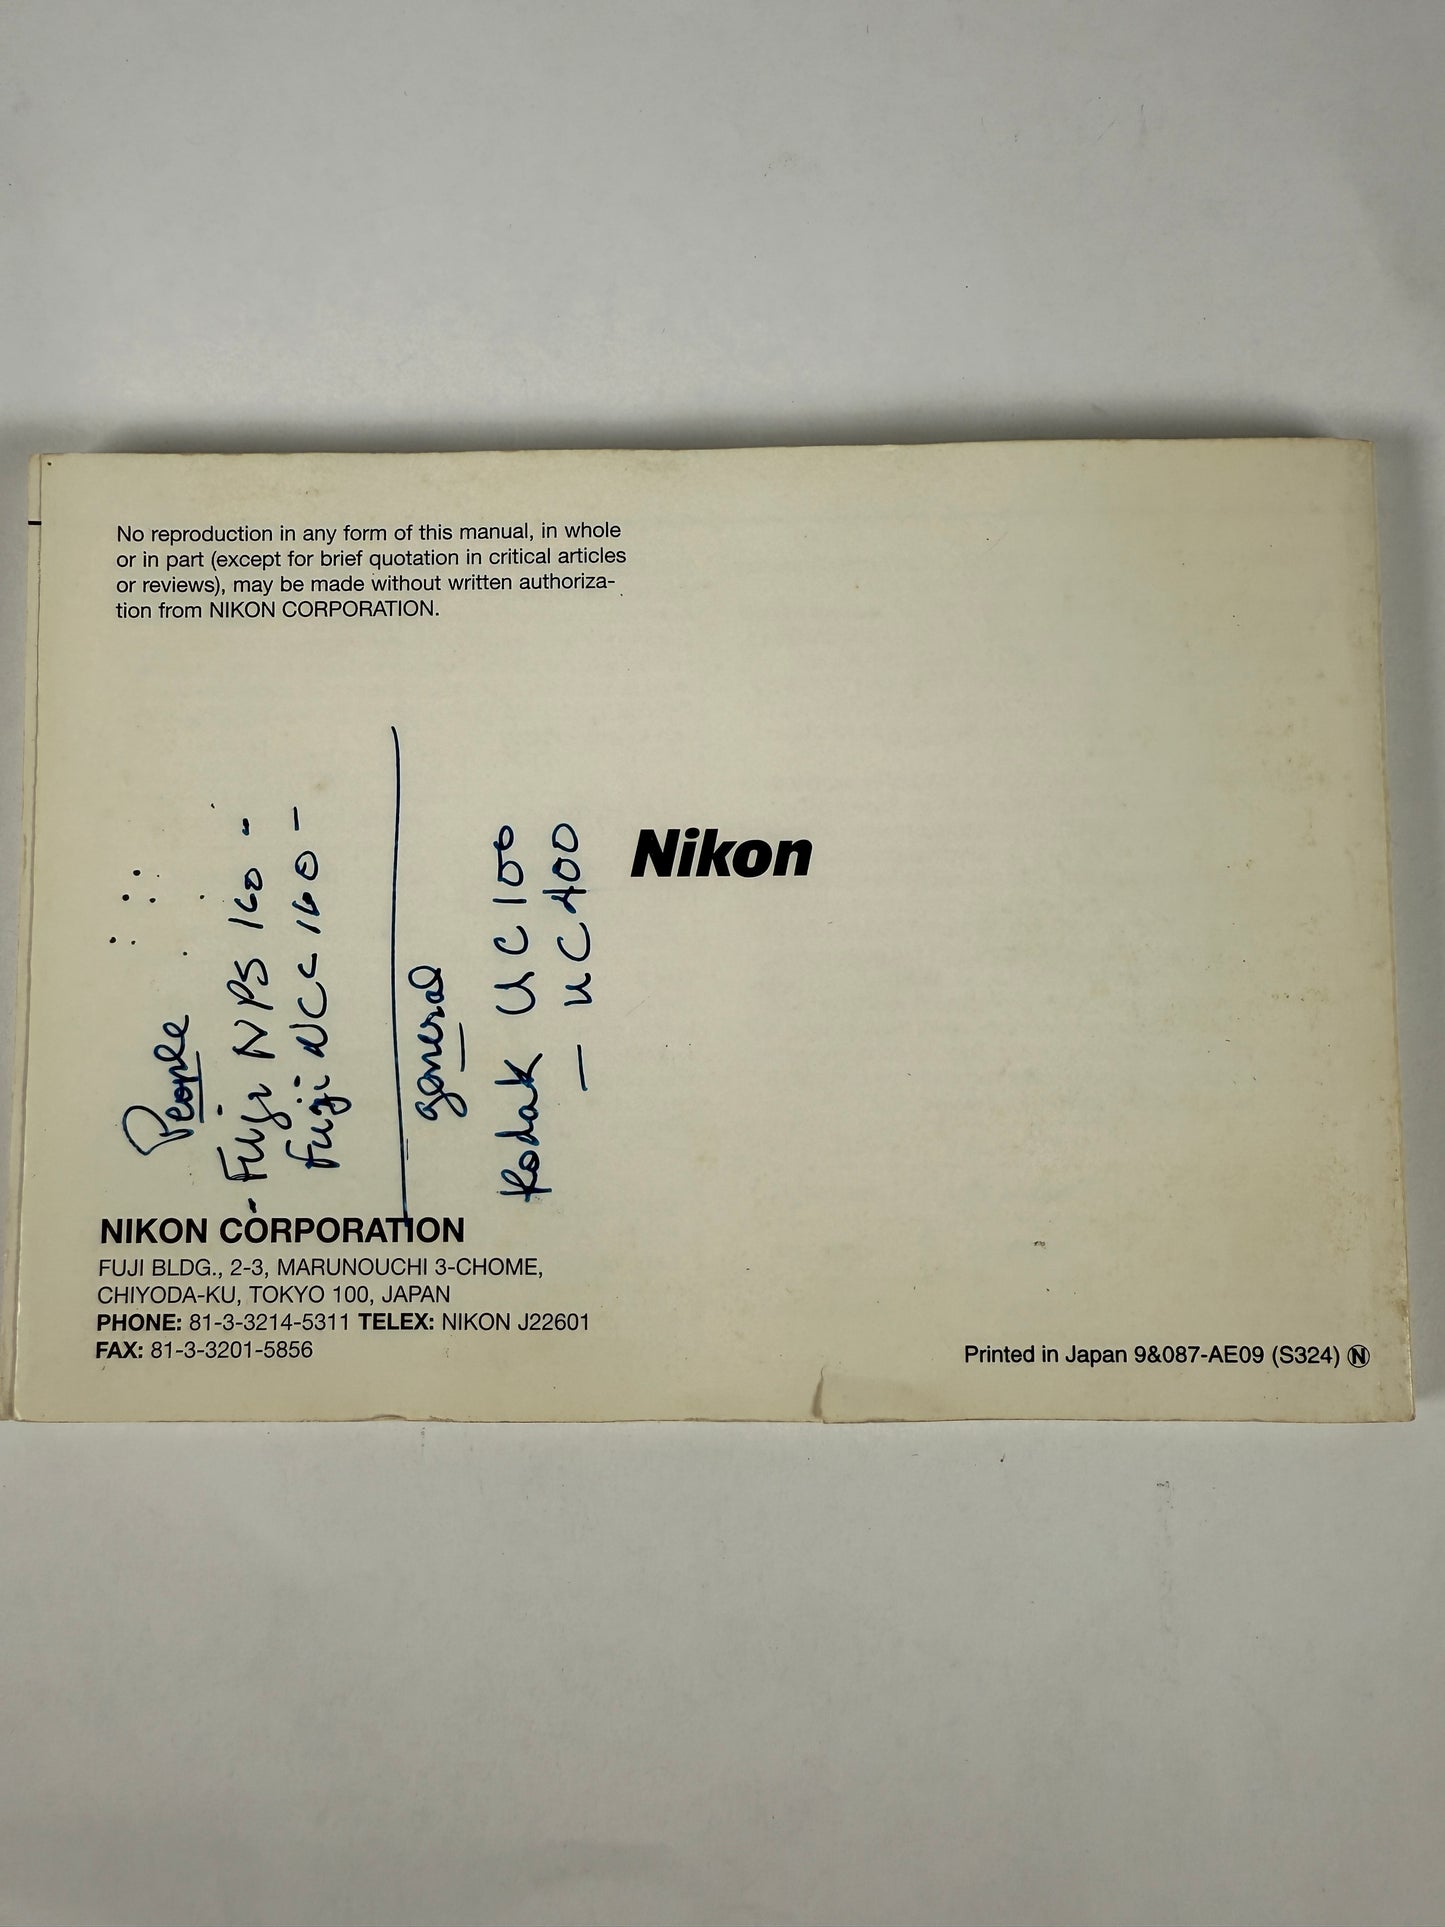 No reproduction in any form of this manual, in whole
or in part (except for brief quotation in critical articles
or reviews), may be made without written authoriza-
tion from NIKON CORPORATION.
People
- Fuji NPS 160 -
Fuji NCC 160 -
general
Kodak UC 100
— UC 400
Nikon
NIKON CORPORATION
FUJI BLDG., 2-3, MARUNOUCHI 3-CHOME,
CHIYODA-KU, TOKYO 100, JAPAN
PHONE: 81-3-3214-5311 TELEX: NIKON J22601
FAX: 81-3-3201-5856
Printed in Japan 9&087-AE09 (S324) Ⓝ